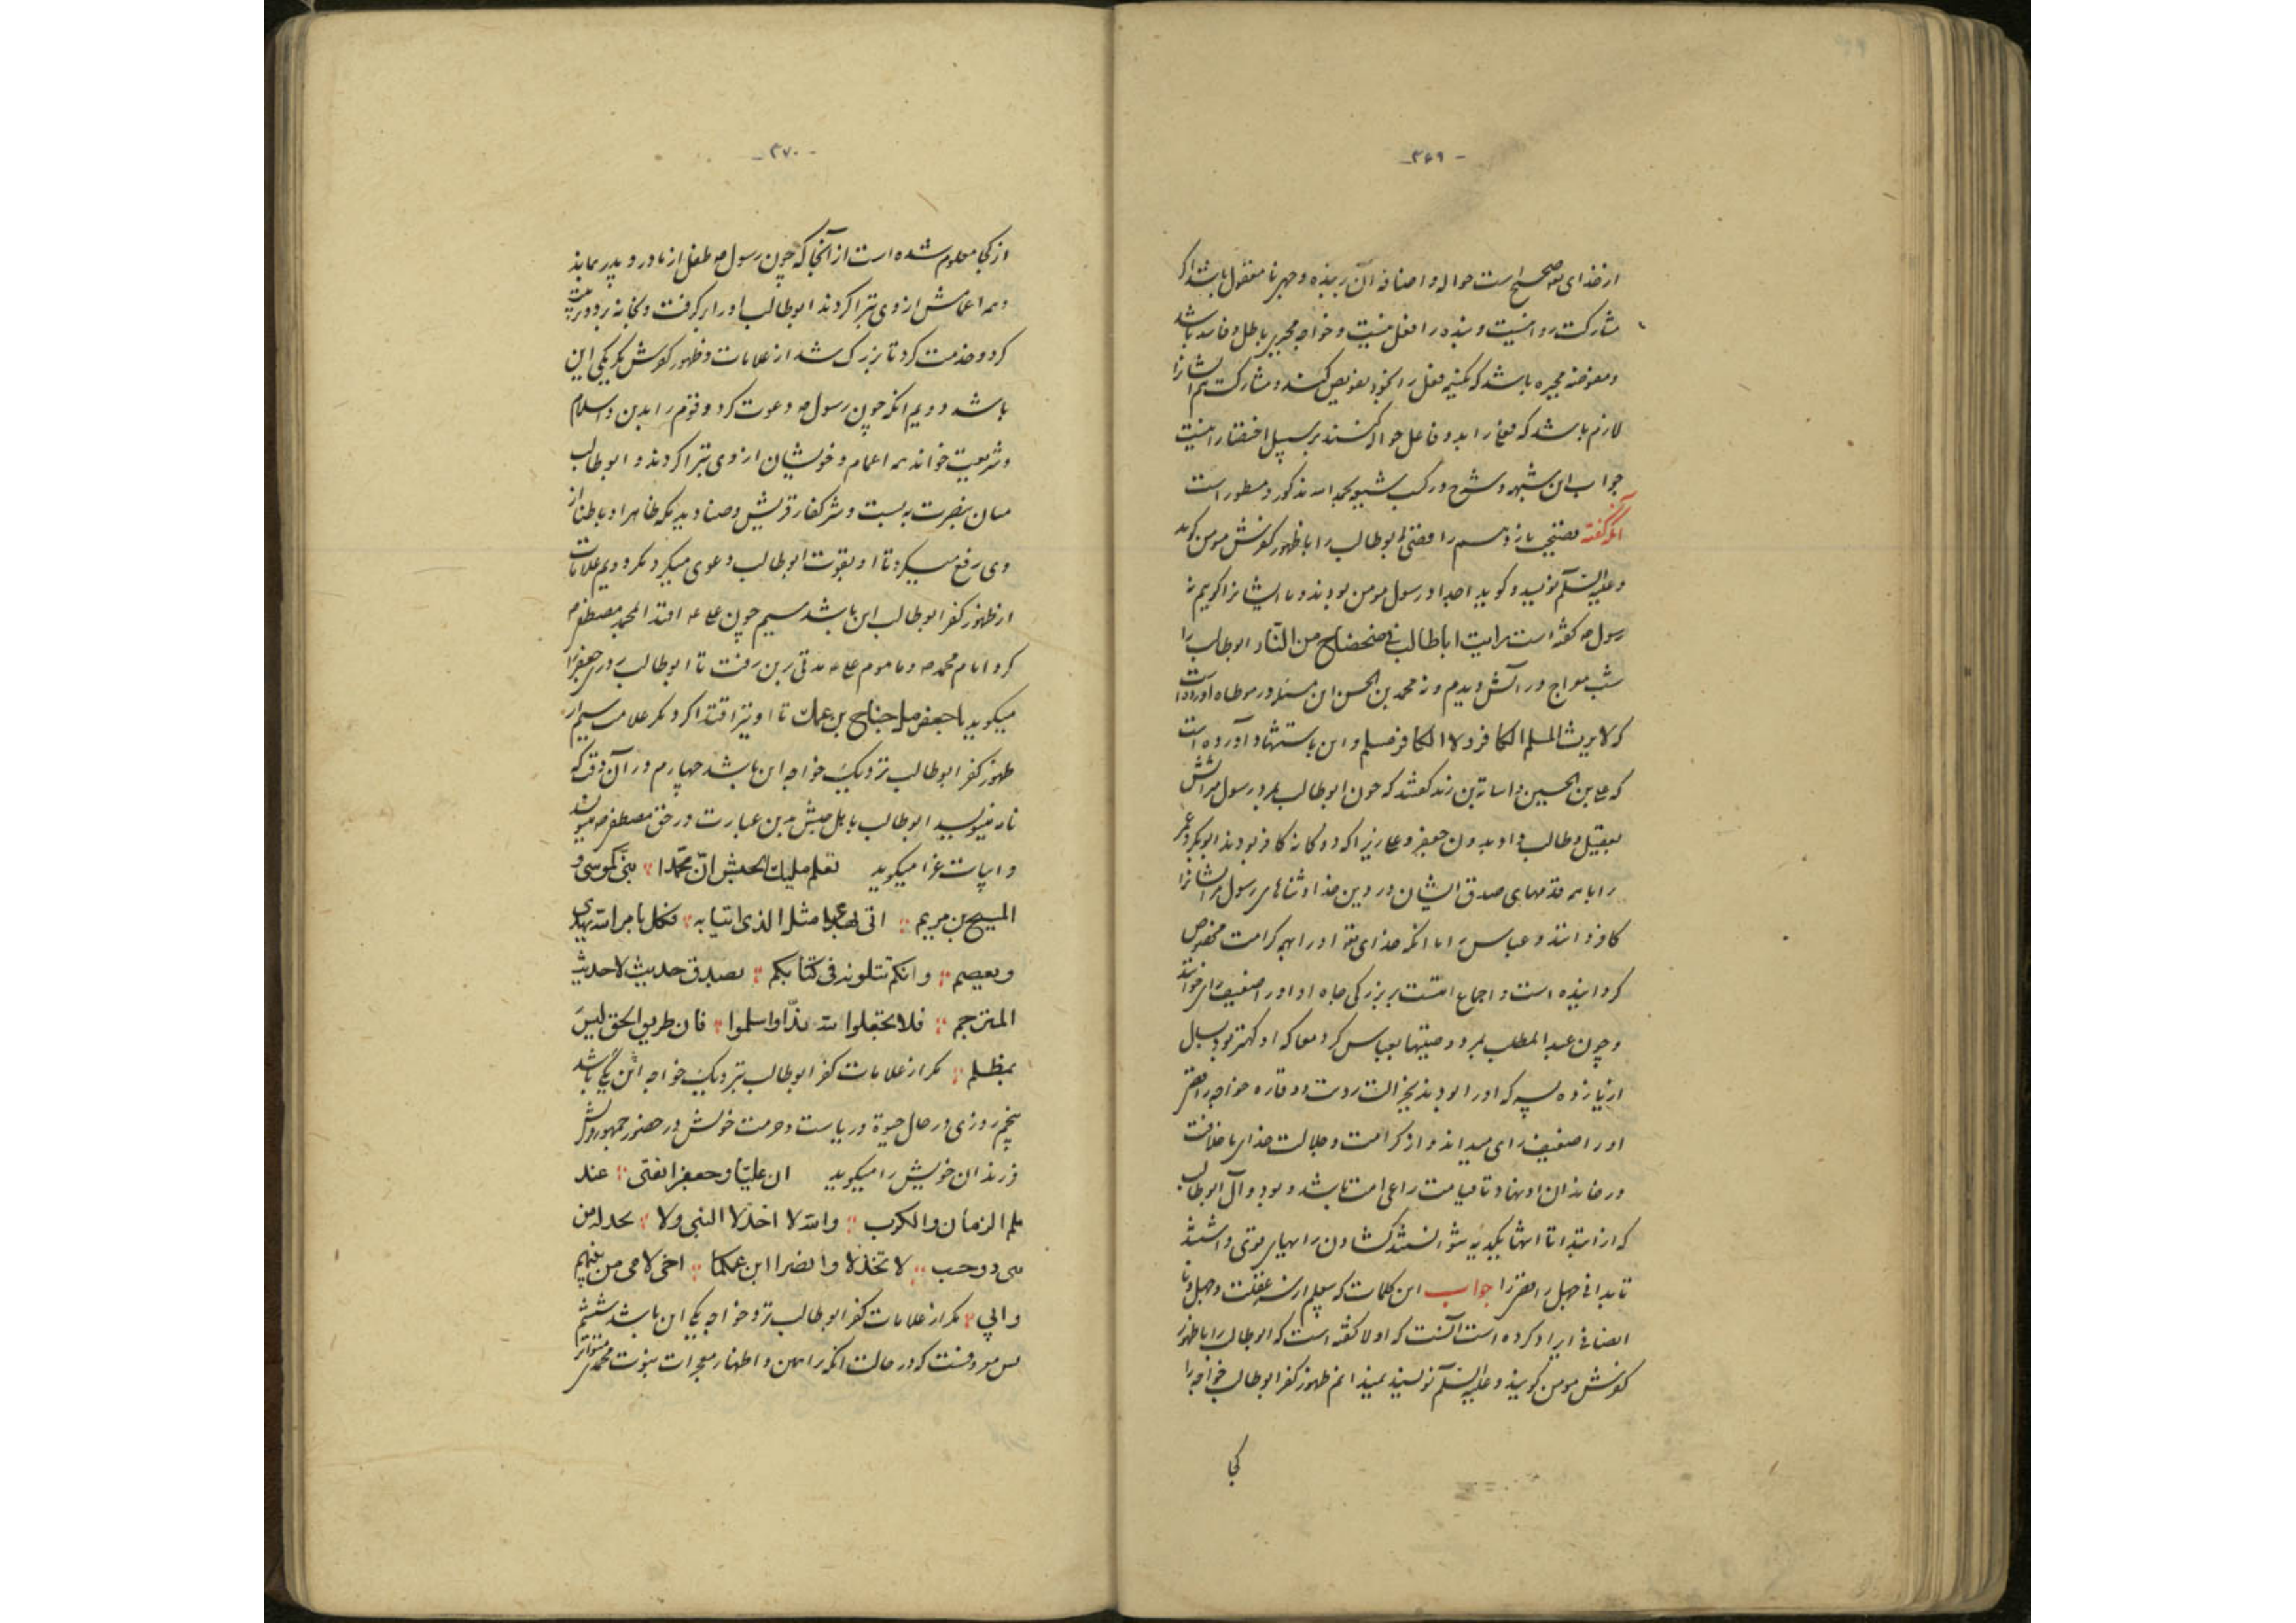 -۳۶۹-
از خدای تع صحیح است حواله و اضافه آن به بنده وجهی نا معقول باشد اگر
مشارکت روا نیست و بنده را فعل نیست و خواجه مجبر باطل و فاسد باشد
و مفوضه مجبره باشد که فعل را بخود تفویض کنند و مشارکت هم ایشانرا
لازم باشد که فعل را بدو فاعل حواله کنند بر سبیل اختیار اینست
جواب این شبهه و شرح در کتب شیعه بحمد الله مذکور و مسطور است
آنگه گفته فضیحت یازدهم رافضی ابوطالب را با ظهور کفرش مومن گوید
و علیه السلم نویسد و گوید اجداد رسول مومن بودند و ما ایشانرا گوییم نه
رسول ص گفته است رایت اباطالب فی ضحضاح من النار ابوطالب را
شب معراج در آتش دیدم و نه محمد بن الحسن این مسئله در موطاه آورده است
که لا یرث المسلم الکافر و لا الکافر مسلم و این باستشهاد آورده است
که علی بن الحسین و اسامة بن زید گفتند که چون ابوطالب بمرد رسول میراثش
بعقیل و طالب داد بدون جعفر و علی زیرا که دوگانه کافر بودند ابوبکر و عمر
را با همه قدمهای صدق ایشان در دین خدا و ثناهای رسول مر ایشانرا
کافر دانند و عباس را با آنکه خدای تع او را بهمه کرامت مخصوص
گردانیده است و اجماع امتست بر بزرگی جاه او او را ضعیف رای خوانند
و چون عبد المطلب بمرد وصیتها بعباس کرد معا که او کهتر بود بسال
از یازده پسر که او را بودند بجزالت و وقار خواجه رافضی
او را ضعیف رای میداند و از کرامت و جلالت خدای ما خلافت
در خاندان او نهاد تا قیامت راعی امت باشد و بود و آل ابوطالب
که از ابتدا تا انتها یکدیه نتوانستند گشادن رایهای قوی داشتند
تا بدانی جهل رافضی را جواب این کلمات که بقلم از سر غفلت و جهل و نا
انصافی ایراد کرده است آنست که اولا گفته است که ابوطالب را با ظهور
کفرش مومن گویند و علیه السلم نویسند نمیدانم ظهور کفر ابوطالب خواجه را
کجا
-۳۷۰-
از کجا معلوم شده است از آنجا که چون رسول ص طفل از مادر و پدر بماند
و همه اعمامش از وی تبرا کردند ابوطالب او را برگرفت و بخانه برد و تربیت
کرد و خدمت کرد تا بزرگ شد از علامات و ظهور کفرش مگر یکی این
باشد دویم آنکه چون رسول ص دعوت کرد و قوم را بدین و اسلام
و شریعت خواند همه اعمام و خویشان از وی تبرا کردند و ابوطالب
میان بنصرت به بست و شر کفار قریش و صنادید مکه ظاهرا و باطنا از
وی رفع میکرد تا او بقوت ابوطالب دعوی میکرد مگر دویم علامات
از ظهور کفر ابوطالب این باشد سیم چون علی ع اقتدا بمحمد مصطفی ص
کرد امام محمد ص و ماموم علی ع مدتی برین رفت تا ابوطالب روزی جعفر را
میگوید یا جعفر صل جناح بن عمک تا او نیز اقتدا کرد مگر علامت سیم از
ظهور کفر ابوطالب نزدیک خواجه این باشد چهارم در آن وقت که
نامه مینویسد ابوطالب باهل حبش بدین عبارت در حق مصطفی ص میستاید
و ابیات غرا میگوید تعلم ملیک الحبش انّ محمّدا نبیّ کموسی و
المسیح بن مریم اتی بهدی مثل الذی اتیا به فکل بامر الله یهدی
و یعصم و انکم تتلونه فی کتابکم بصدق حدیث لا حدیث
المترجم فلا تجعلوا لله ندّا و اسلموا فان طریق الحق لیس
بمظلم مگر از علامات کفر ابوطالب بنزدیک خواجه این یکی باشد
پنجم روزی در حال حیوة و ریاست و حرمت خویش در حضور جمهور قریش
فرزندان خویش را میگوید ان علیّا و جعفرا ثقتی عند
ملم الزمان و الکرب والله لا اخذلا النبی ولا یخذله من
بنی ذو حسب لا تخذلا و انصرا ابن عمکما اخی لامی من بینهم
و ابی مگر از علامات کفر ابوطالب نزد خواجه یکی این باشد ششم
بس معروفست که در حالت آنکه براهین و اظهار معجزات نبوت محمدی متواتر